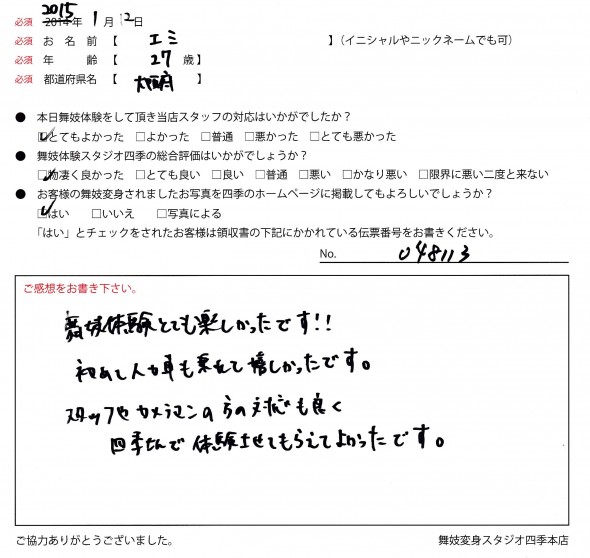 2015
必須 2014年 1月 12日
必須 お名前【 エミ 】(イニシャルやニックネームでも可)
必須 年齢【 27 歳】
必須 都道府県名【 大阪府 】
● 本日舞妓体験をして頂き当店スタッフの対応はいかがでしたか?
☑とてもよかった □よかった □普通 □悪かった □とても悪かった
● 舞妓体験スタジオ四季の総合評価はいかがでしょうか?
☑物凄く良かった □とても良い □良い □普通 □悪い □かなり悪い □限界に悪い二度と来ない
● お客様の舞妓変身されましたお写真を四季のホームページに掲載してもよろしいでしょうか?
☑はい □いいえ □写真による
「はい」とチェックをされたお客様は領収書の下記にかかれている伝票番号をお書きください。
No. 048113
ご感想をお書き下さい。
舞妓体験とても楽しかったです!!
初めて人力車も乗れて嬉しかったです。
スタッフやカメラマンの方の対応も良く
四季さんで体験させてもらえてよかったです。
ご協力ありがとうございました。 舞妓変身スタジオ四季本店